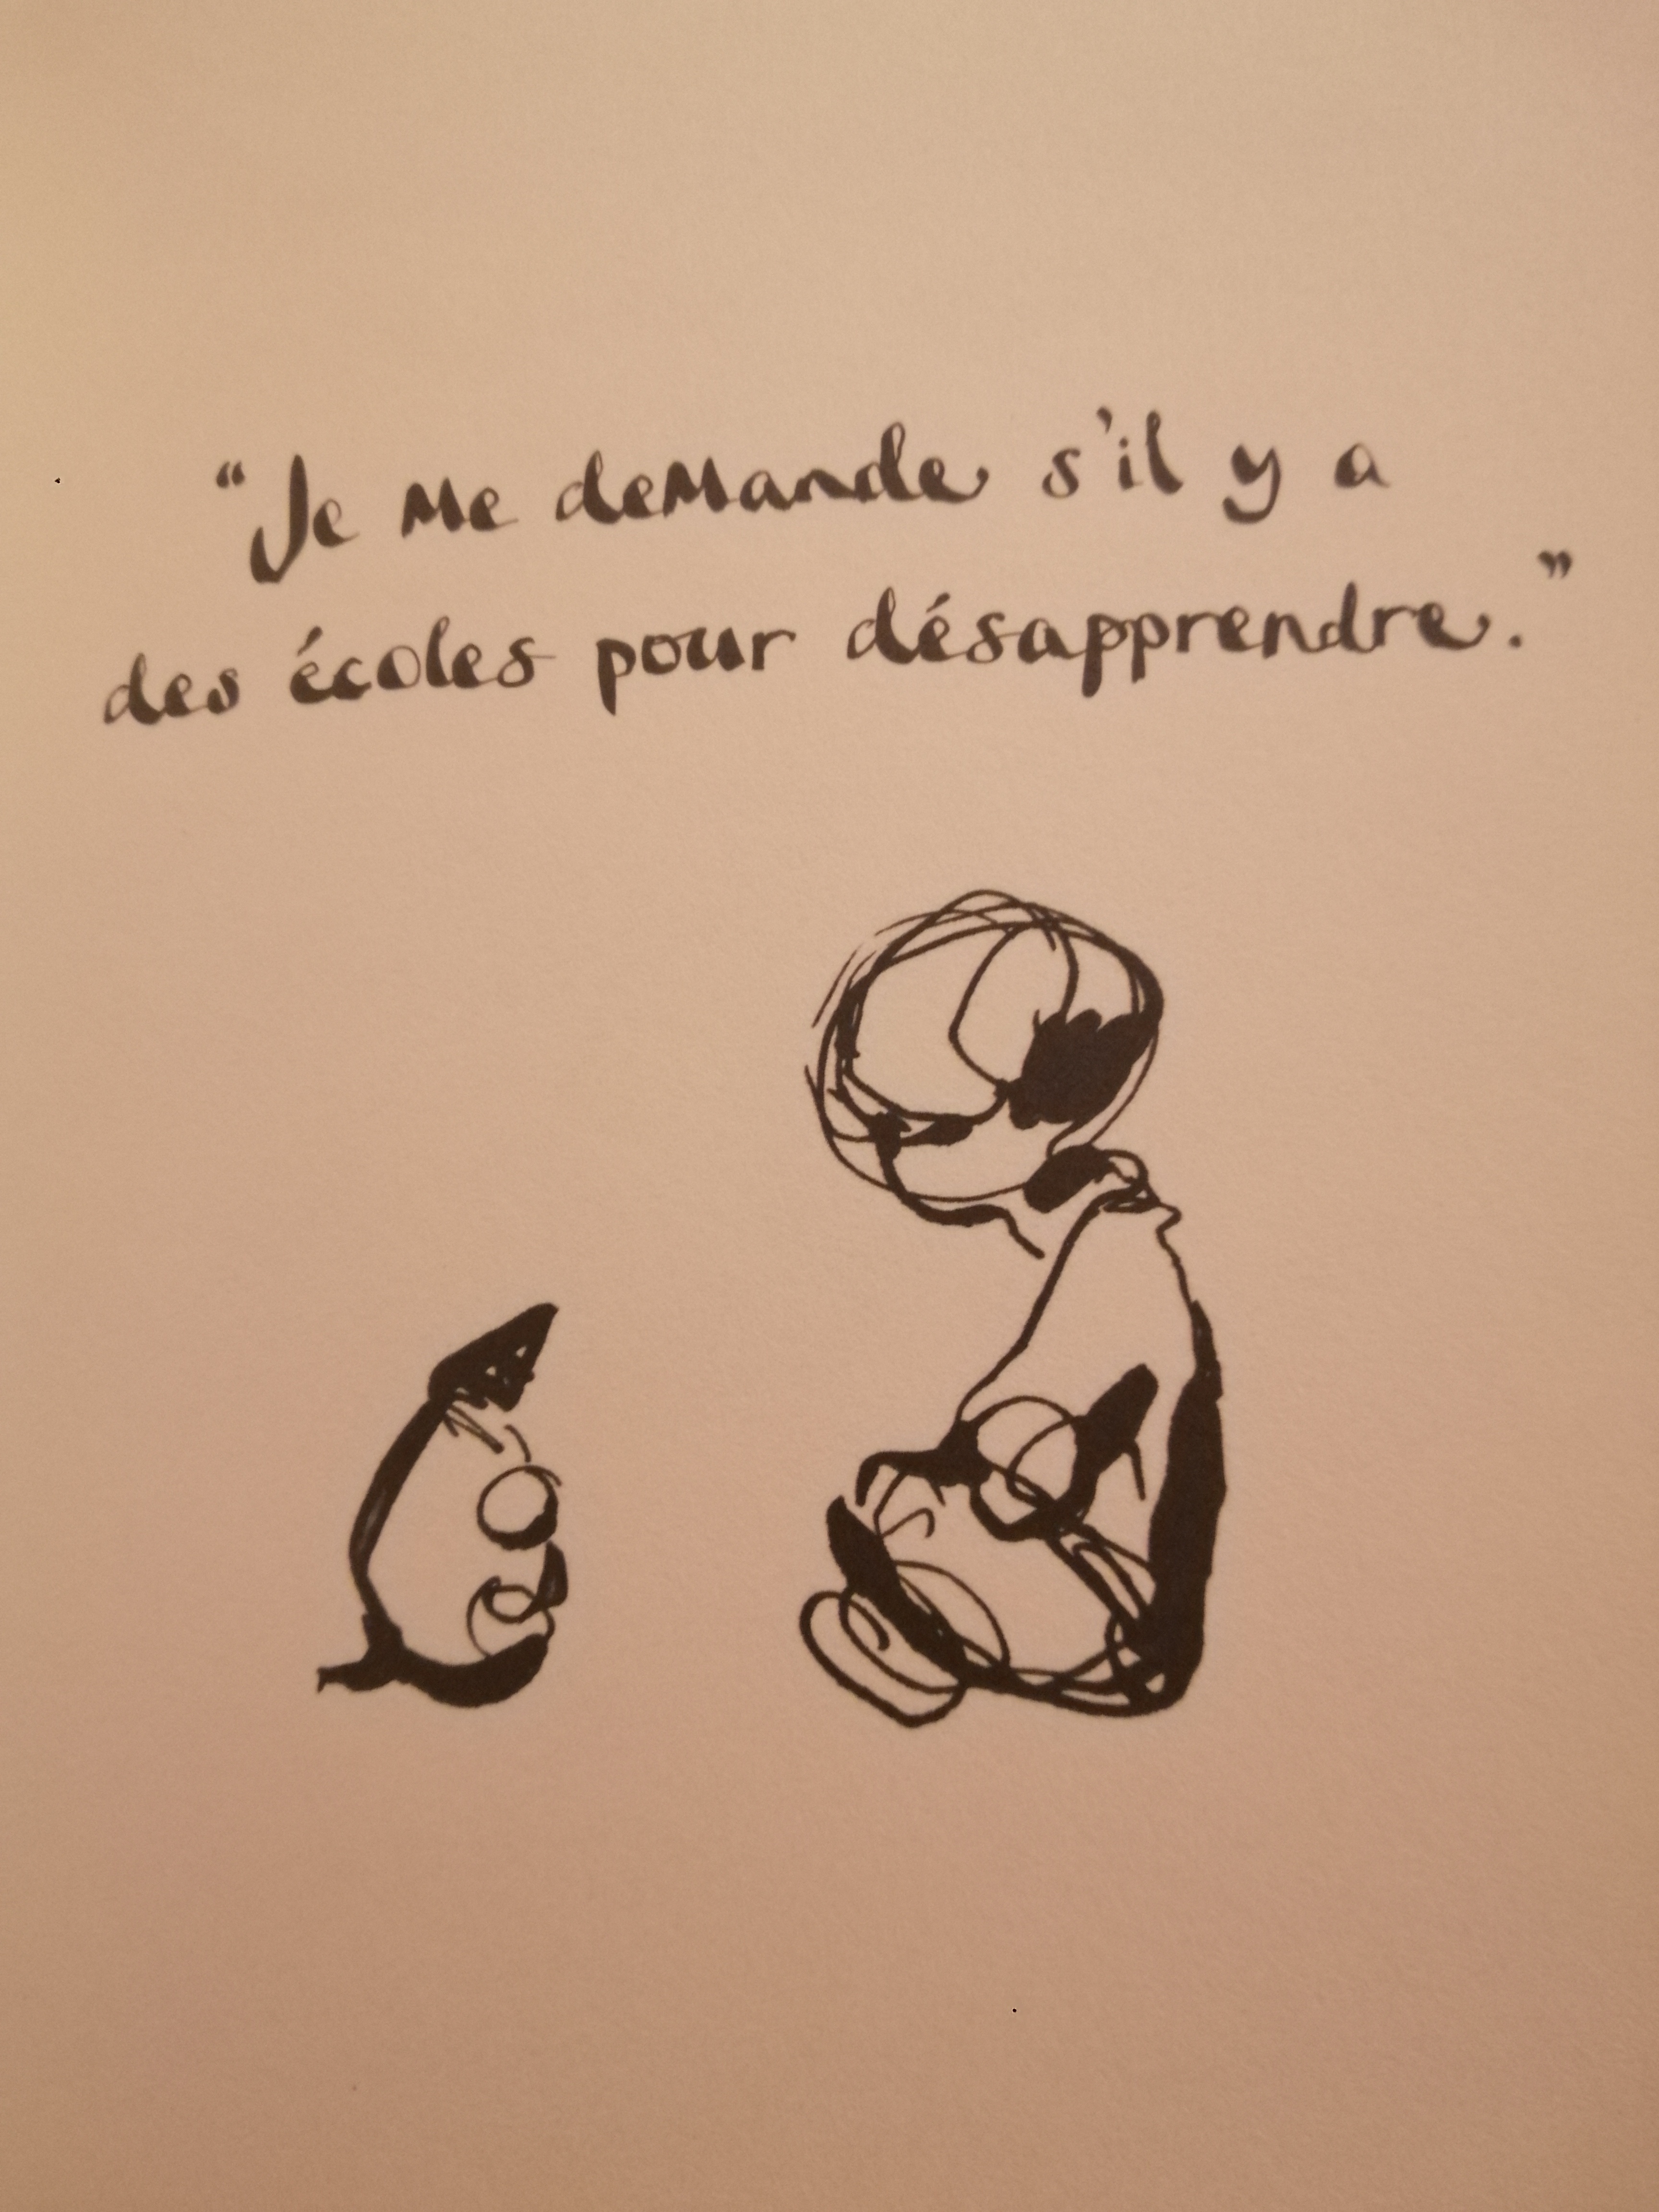 “Je me demande s'il y a
des écoles pour désapprendre.”